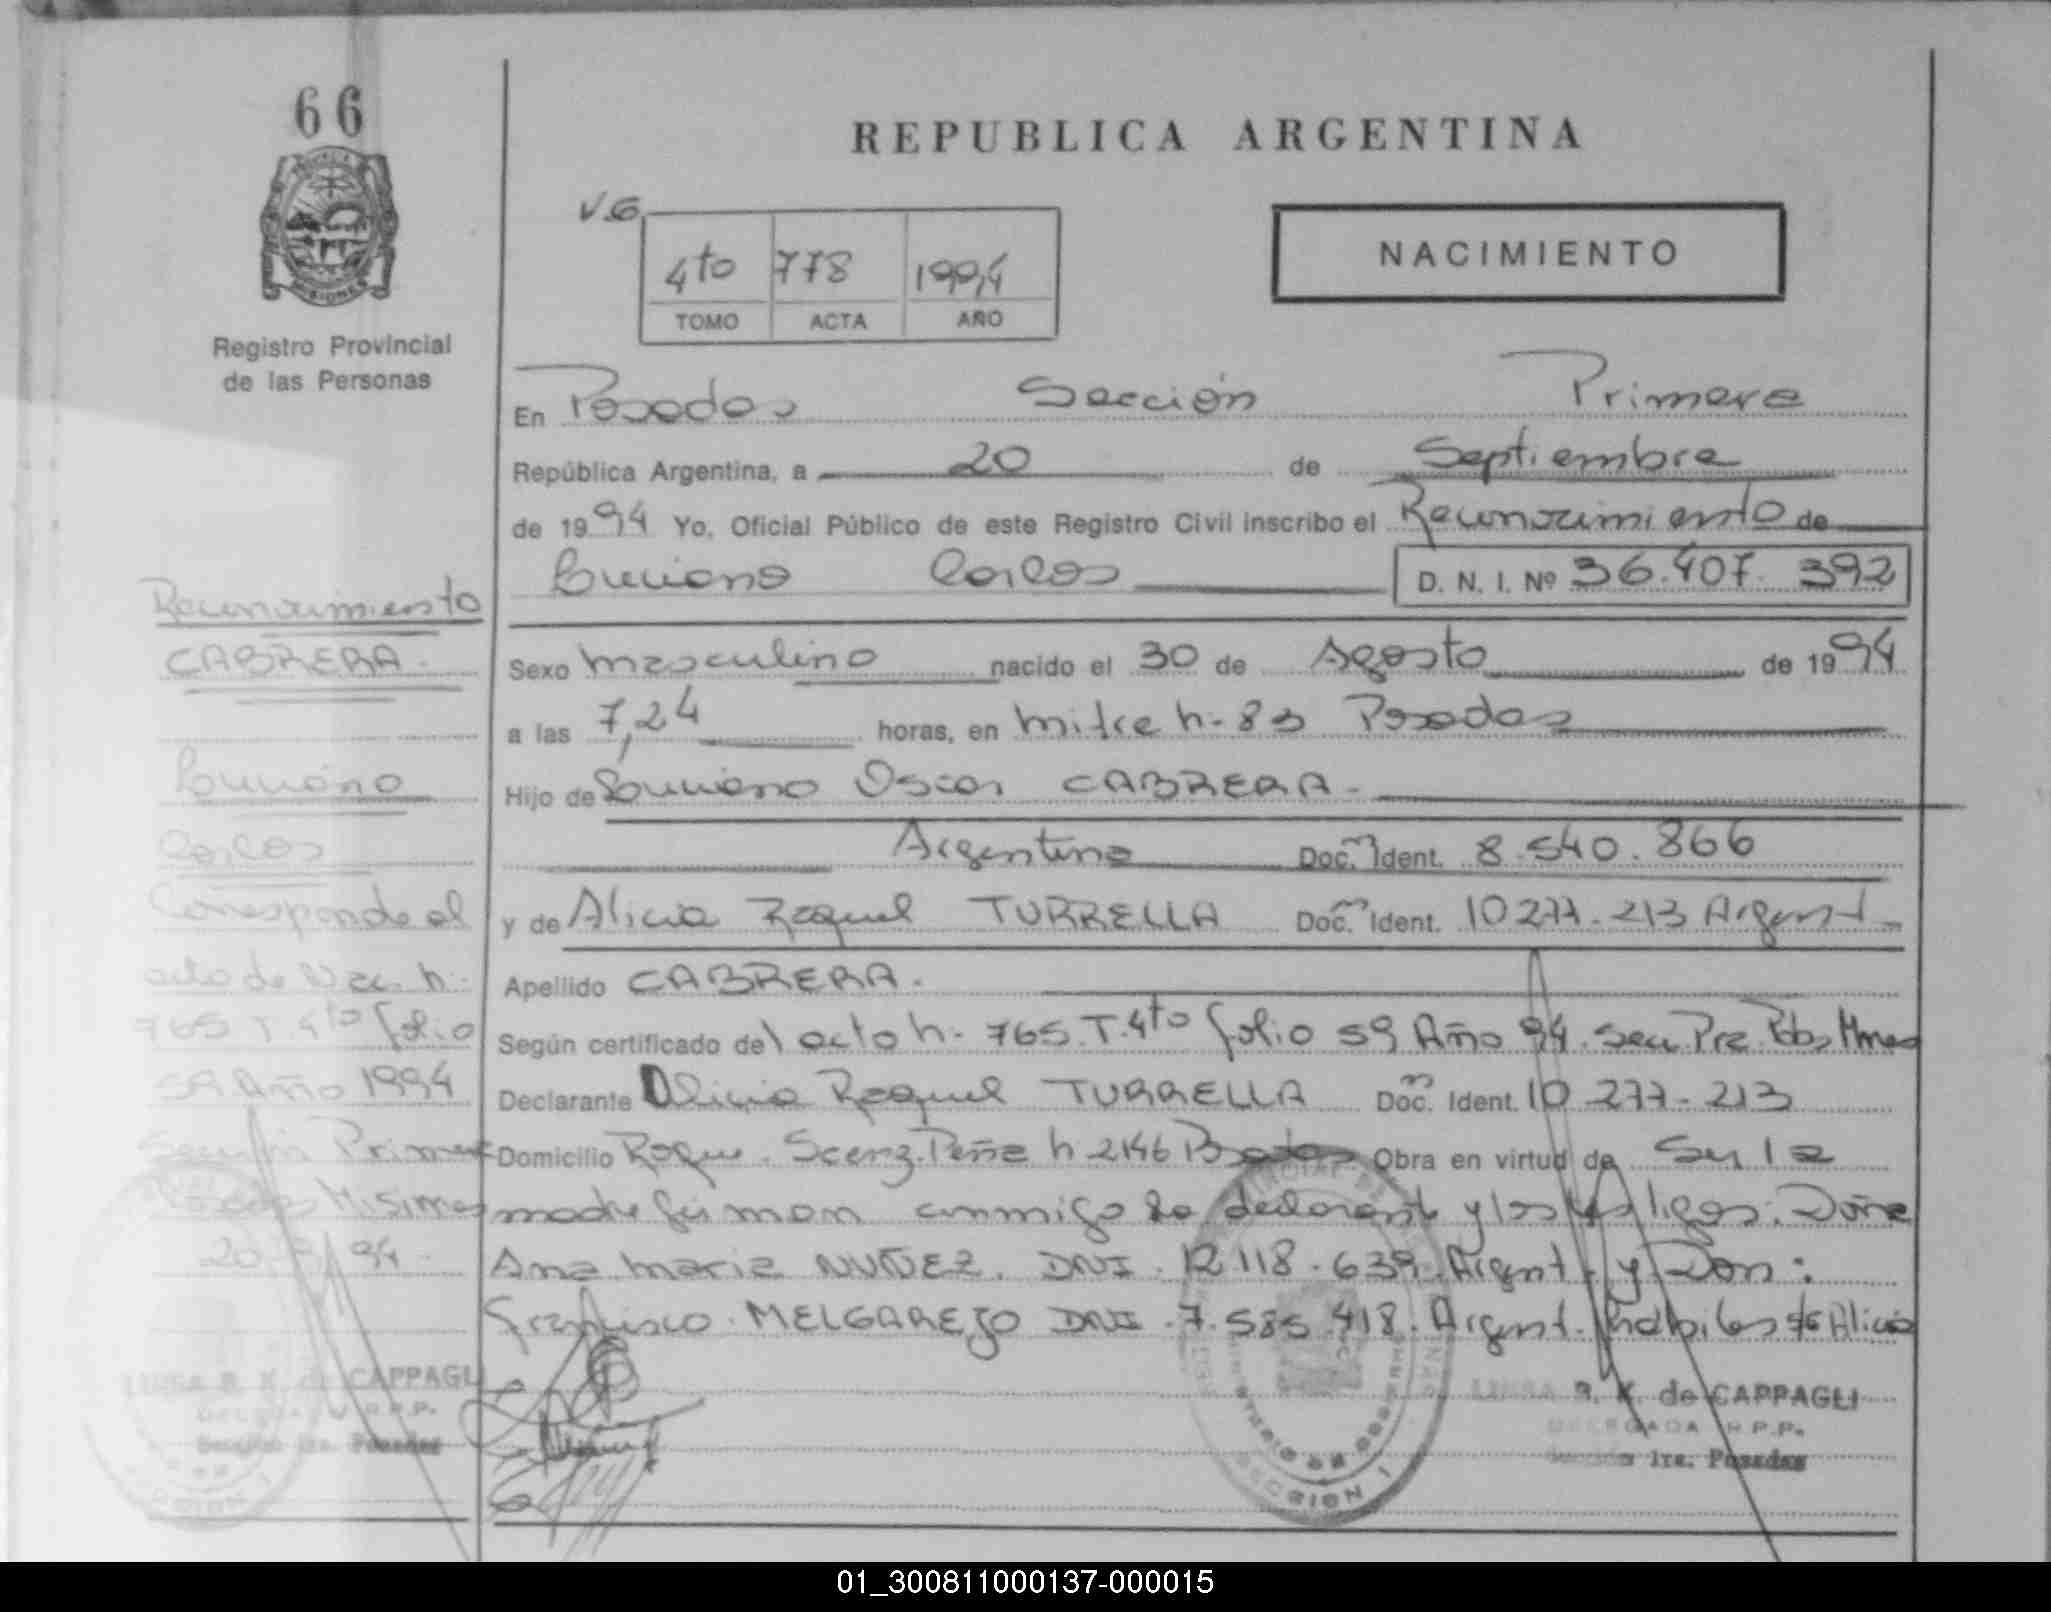 66
REPUBLICA ARGENTINA
NACIMIENTO
V.G.
4to 778 1994
TOMO ACTA AÑO
MISIONES
Registro Provincial
de las Personas
En Posadas Sección Primera
República Argentina, a 20 de Septiembre
de 1994 Yo, Oficial Público de este Registro Civil inscribo el Reconocimiento de
Luciano Carlos D. N. I. Nº 36.407.392
Sexo masculino nacido el 30 de Agosto de 1994
a las 7,24 horas, en Mitre n- 83 Posadas
Hijo de Luciano Oscar CABRERA.-
Argentino Doc. Ident. 8.540.866
y de Alicia Raquel TURRELLA Doc. Ident. 10277.213 Argent.
Apellido CABRERA.
Según certificado del acta n- 765.T.4to folio 59 Año 94. Secc Pra. Pdas Mnes
Declarante Alicia Raquel TURRELLA Doc. Ident. 10 277.213
Domicilio Roque Saenz Peña n 2146 Obra en virtud de Ser la
madre firman conmigo la declarante y los testigos: Doña
Ana Maria NUÑEZ. DNI. 12.118.639. Argent. y Don:
MELGAREJO DNI. 7.585.418. Argent. Alicia
Reconocimiento
CABRERA.
Luciano
Carlos
Corresponde al
acta de Nac. n-
765 T. 4to folio
59 Año 1994
Sección Primera
Posadas Misiones
20 94.
LUISA R. K. de CAPPAGLI
DELEGADA R.P.P.
Sección 1ra. Posadas
LUISA R. K. de CAPPAGLI
DELEGADA R.P.P.
Sección 1ra. Posadas
SECCION I
01_300811000137-000015